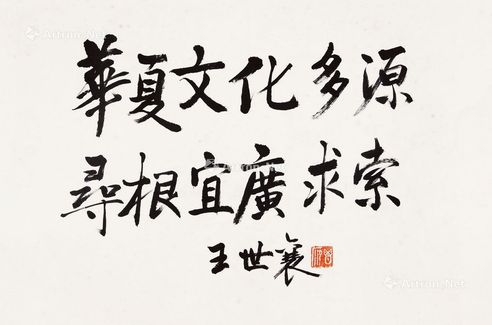 華夏文化多源
尋根宜廣求索
王世襄
Artron.Net
Artron.Net